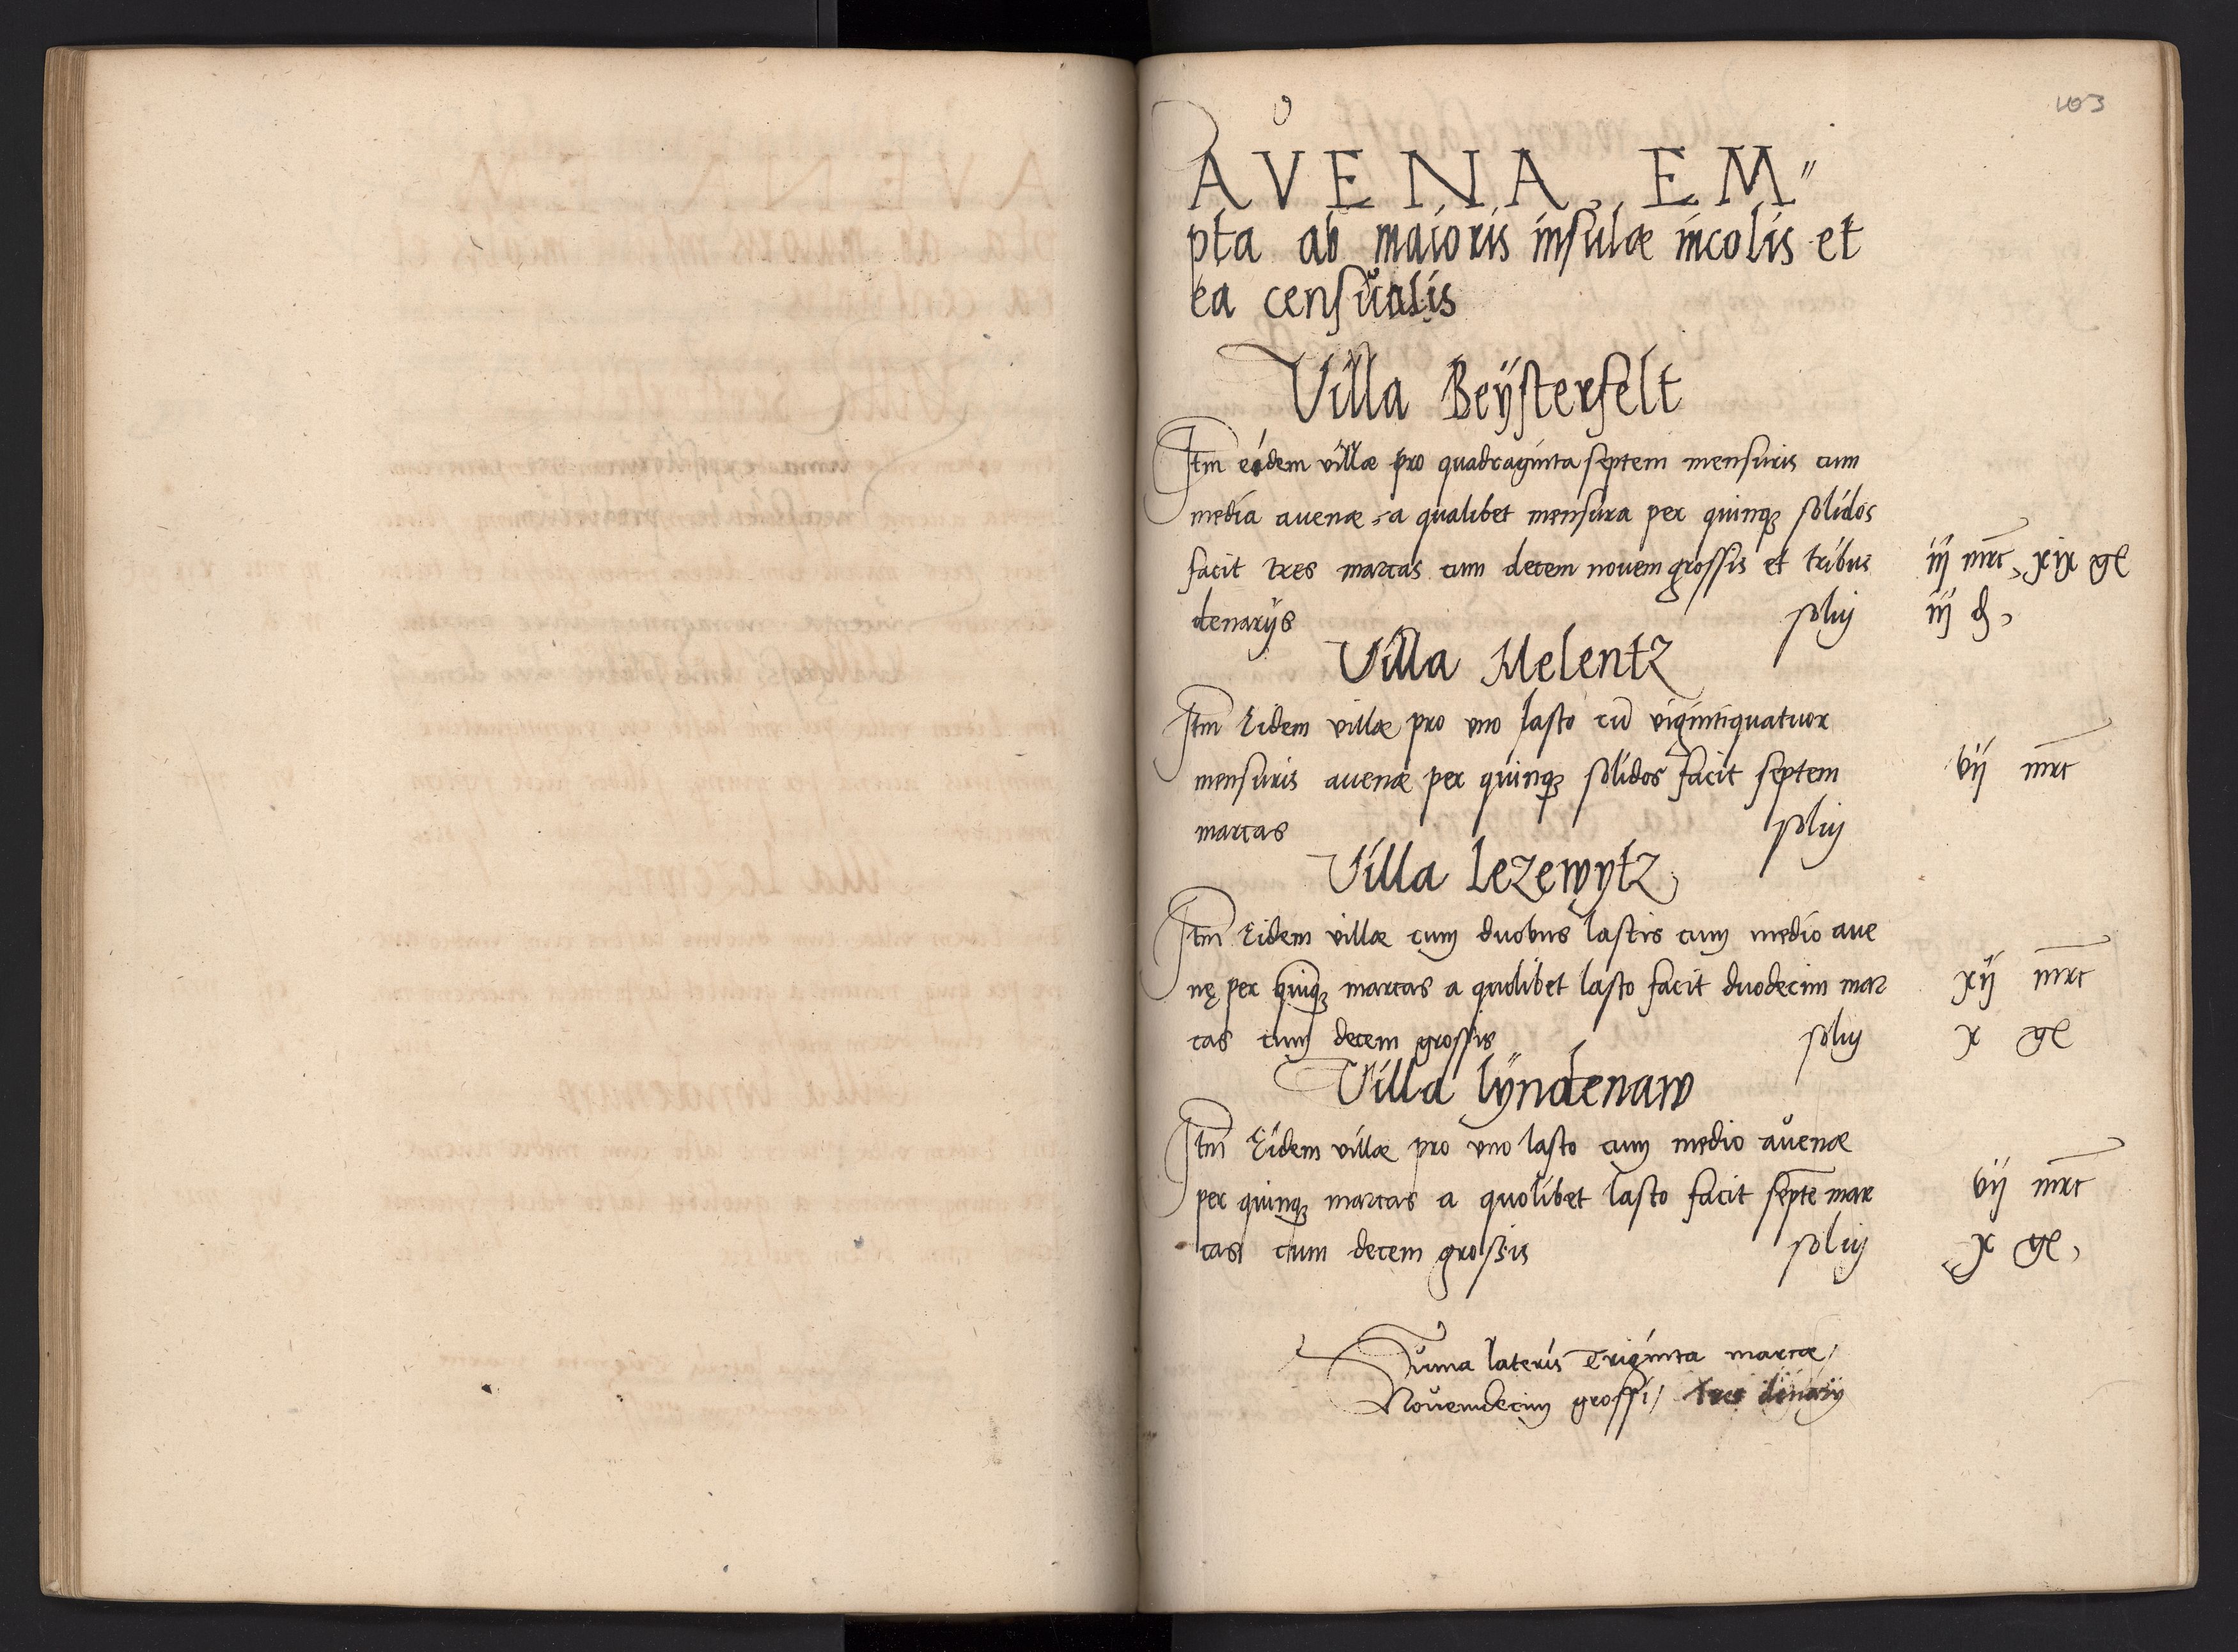 103
AVENA EM"
pta ab maioris insulæ incolis et
ea censualis
Villa Beÿsterfelt
Itm eidem villæ pro quadraginta septem mensuris cum
media auenæ a qualibet mensura per quinqȝ solidos
facit tres marcas cum decem novem grossis et tribus
iij mrc xix gr
denarijs soluj
iij d
Villa Melentz
Itm Eidem villæ pro vno lasto cū vigintiquatuor
mensuris auenæ per quinqȝ solidos facit septem
vij mrc
marcas soluj
Villa Lezewytz
Itm Eidem villæ cum duobus lastis cum medio aue
nę per quinqȝ marcas a quolibet lasto facit duodecim mar
xij mrc
cas cum decem grossis soluj
x gr
Villa Lÿndenaw
Itm Eidem villæ pro vno lasto cum medio auenæ
per quinqȝ marcas a quolibet lasto facit septē mar
vij mrc
cas cum decem grossis soluj
x gr
Suma lateris Triginta marcæ/
Novemdecim grossi/ tres denarij